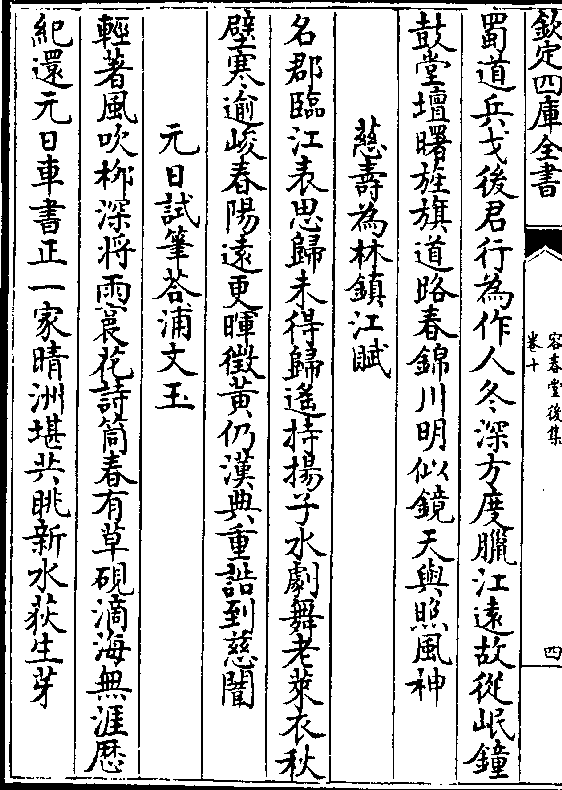 欽定四庫全書
容春堂後集
卷十
四
蜀道兵戈後君行為作人冬深方度臘江遠故從岷鐘
鼓堂壇曙旌旗道路春錦川明似鏡天與照風神
慈壽為林鎮江賦
名郡臨江表思歸未得歸遙持揚子水劇舞老萊衣秋
壁寒逾峻春陽遠更暉徵黄仍漢典重誥到慈闈
元日試筆荅浦文玉
輕著風吹栁深将雨裛花詩筒春有草硯滴海無涯厯
紀還元日車書正一家晴洲堪共眺新水荻生芽